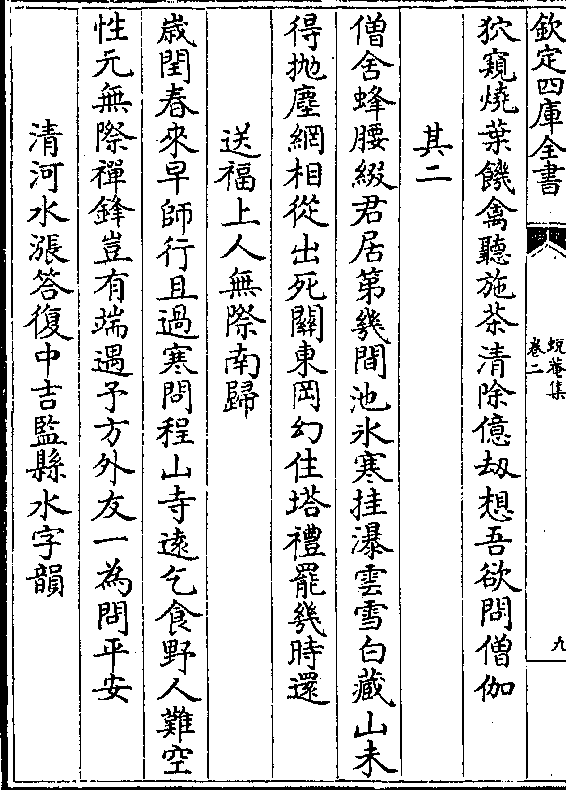 欽定四庫全書
蛻菴集
卷二
九
狖窺燒葉饑禽聽施茶清除億刼想吾欲問僧伽
其二
僧舍蜂腰綴君居第幾間池氷寒挂瀑雲雪白藏山未
得抛塵網相從出死關東岡幻住塔禮罷幾時還
送福上人無際南歸
歳閏春來早師行且過寒問程山寺逺乞食野人難空
性元無際禪鋒豈有端遇予方外友一為問平安
清河水漲答復中吉監縣水字韻